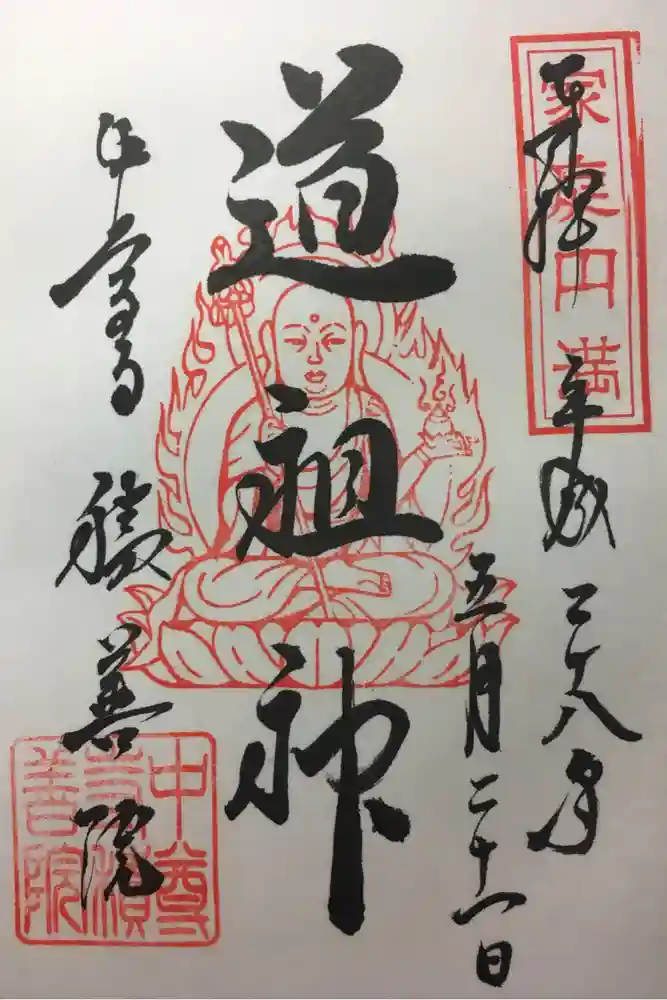 家庭円満
奉拝 平成二十八年
五月二十一日
道祖神
中尊寺 積善院
中尊
寺積
善院